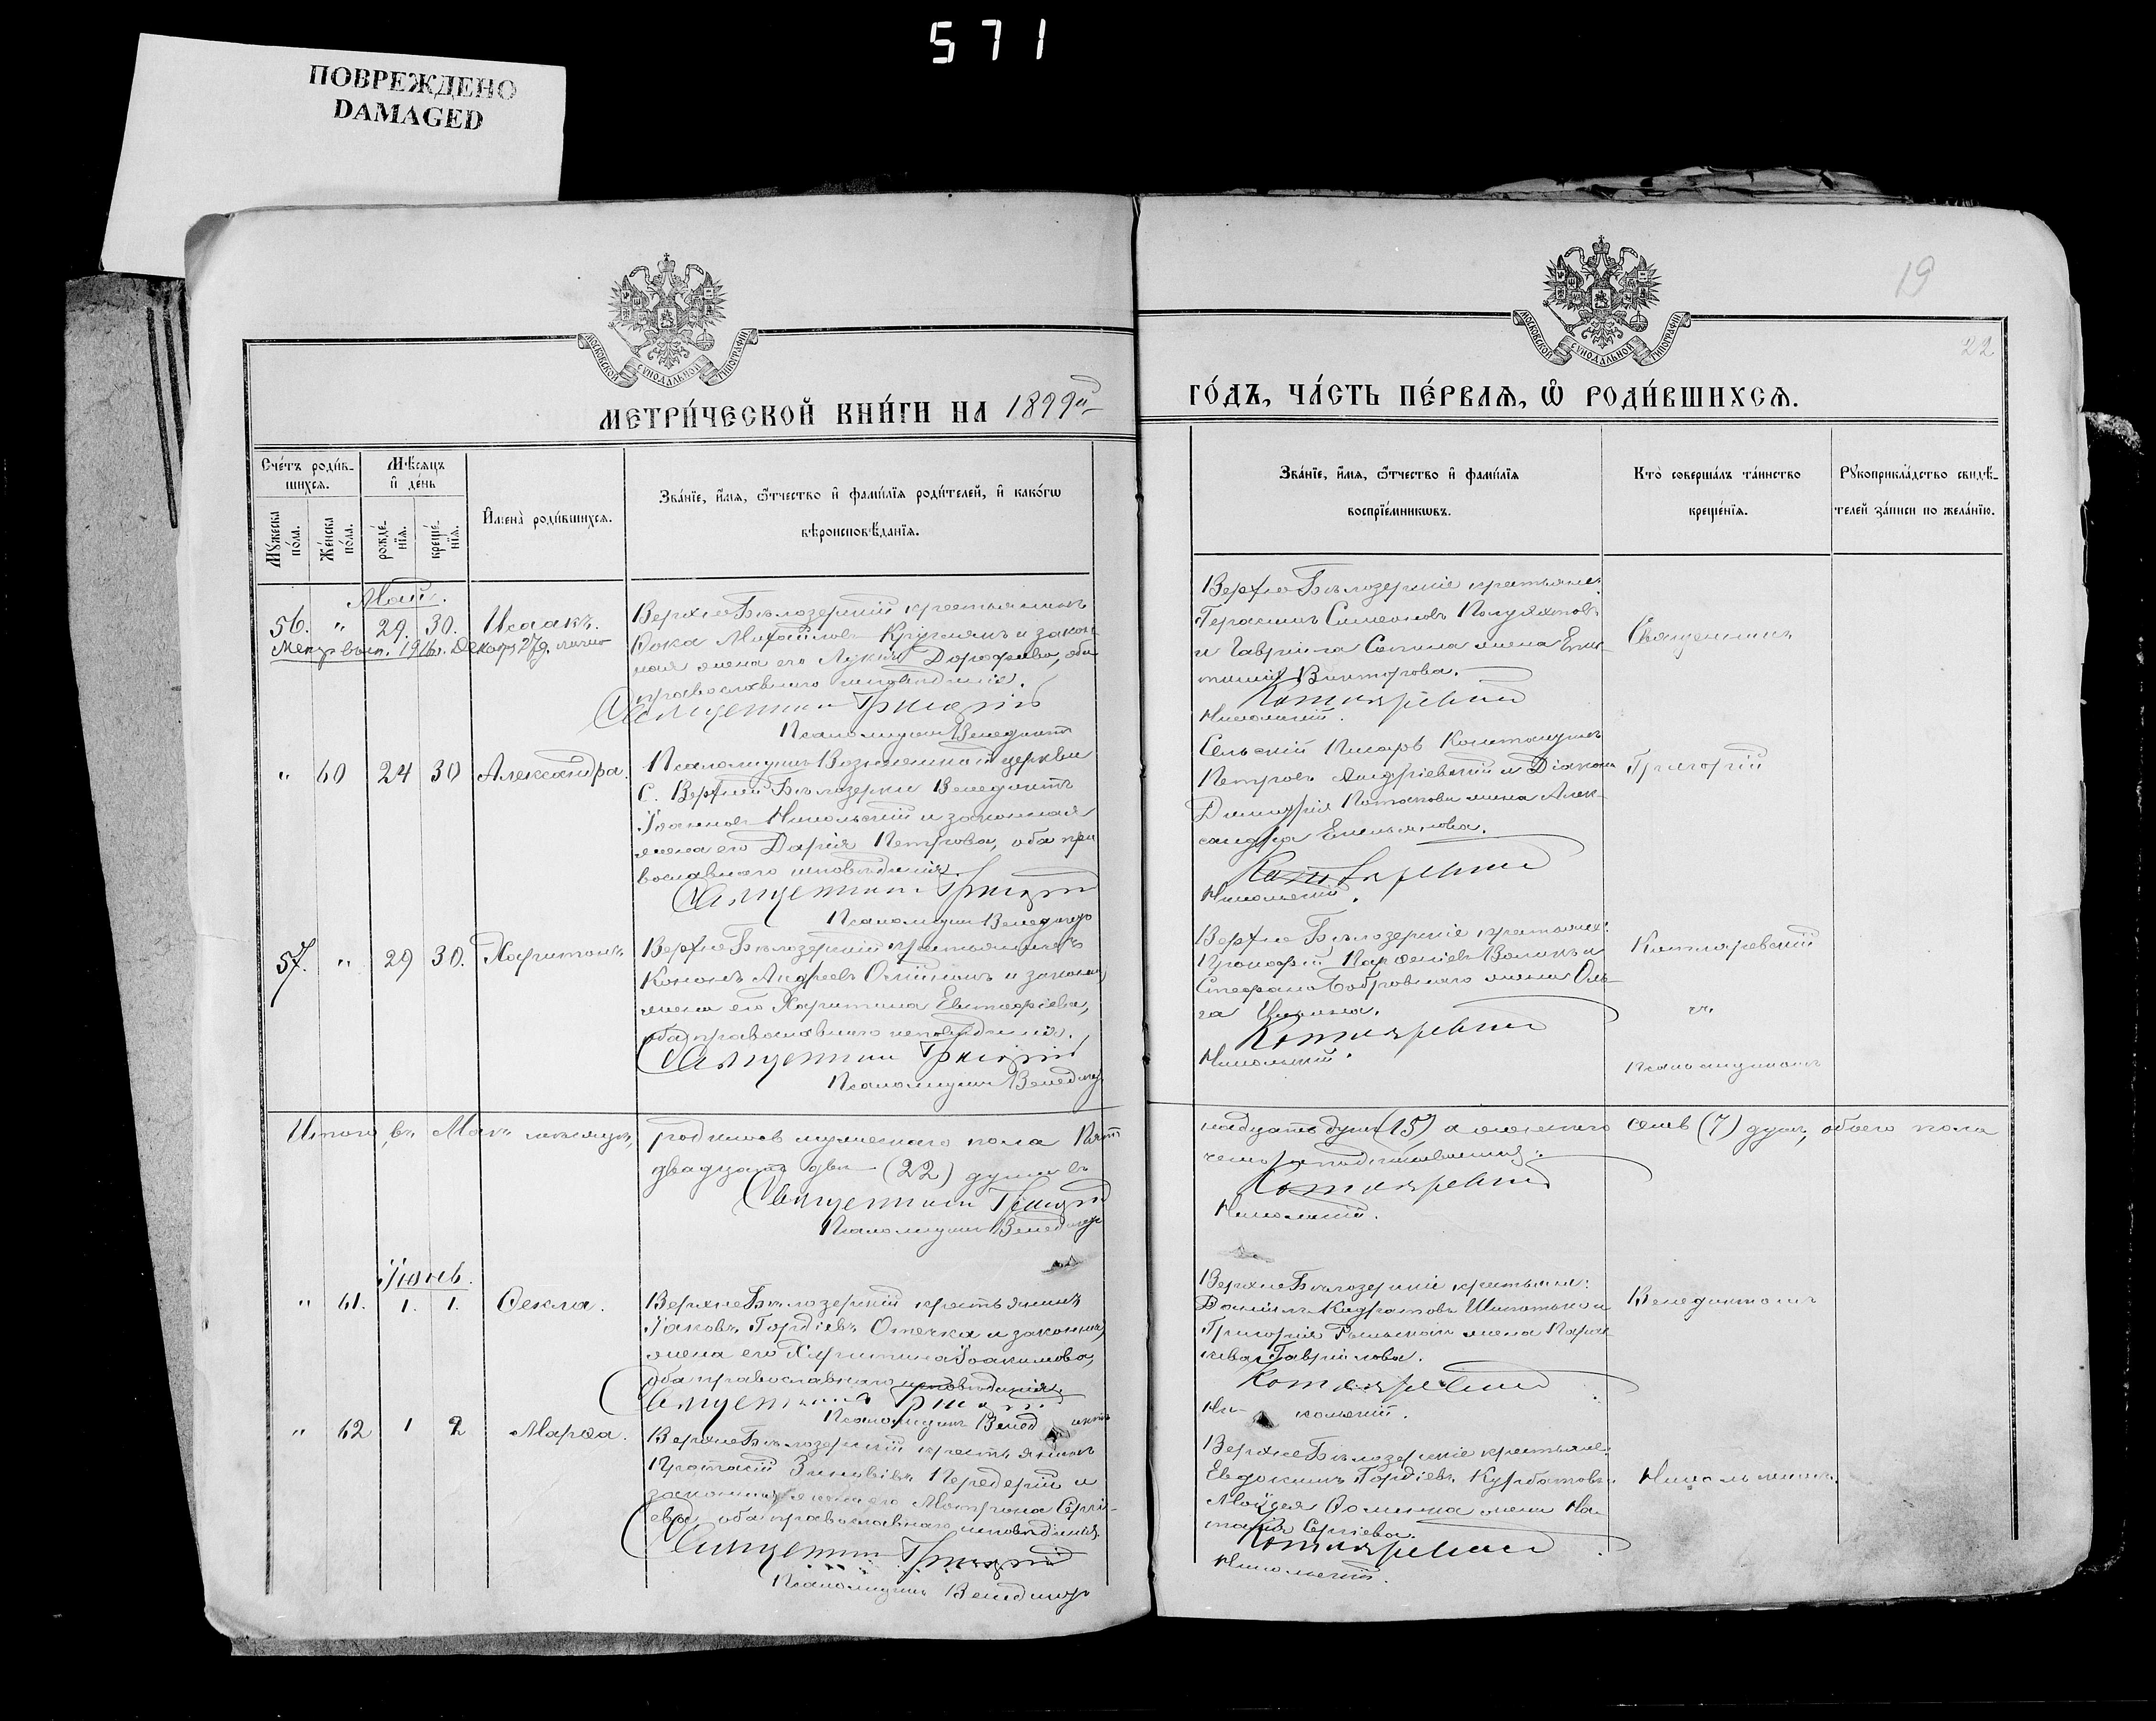 571
ПОВРЕЖДЕНО
DAMAGED
19
22
МОСКОВСКОЙ СѴНОДАЛЬНОЙ ТИПОГРАФІИ
МОСКОВСКОЙ СѴНОДАЛЬНОЙ ТИПОГРАФІИ
МЕТРИ́ЧЕСКОЙ КНИ́ГИ НА 1899й
ГО́ДЪ, ЧА́СТЬ ПЕ́РВАЯ, Ѡ РОДИ́ВШИХСЯ.
Сче́тъ роди́в-
шихся.
Мѣ́сяцъ
и҆ де́нь
Мꙋ́жеска
по́ла.
Же́нска
по́ла.
рожде́-
нїѧ.
креще́-
нїѧ.
И҆мена̀ роди́вшихся.
Зва́нїе, и҆́мѧ, ѻ҆́тчество и҆ фами́лїѧ роди́телей, и҆ како́гѡ
вѣроисповѣ́данїѧ.
Зва́нїе, и҆́мѧ, ѻ҆́тчество и҆ фами́лїѧ
воспрїе́мникѡвъ.
Кто̀ соверша́лъ та́инство
креще́нїѧ.
Рꙋкоприкла́дство свидѣ́-
телей за́писи по жела́нїю.
Май.
56. " 29. 30. Исаакъ.
Верхне Бѣлозерскій крестьянинъ
Ѳока Михайловъ и закон-
ная жена его Дорофѣева, оба
православнаго исповѣданія.
Священникъ Григорій
Псаломщикъ Венедиктъ
Верхне Бѣлозерскіе крестьяне:
Герасимъ Симеоновъ
и Гавріила жена
Викторова.
Котляревскій
Никольскій.
Священникъ
" 60 24 30 Александра.
Псаломщикъ Вознесенской церкви
с. Верхней Бѣлозерки Венедиктъ
Іоанновъ Никольскій и законная
жена его Дарія Петрова, оба пра
вославнаго исповѣданія.
Священникъ Григорій
Псаломщикъ Венедиктъ
Сельскій Писарь
Петровъ Андріевскій и Діакона
Димитрія Потапова жена Алек-
сандра Емельянова.
Котляревскій
Никольскій.
Григорій
57. " 29 30. Харитонъ
Верхне Бѣлозерскій крестьянинъ
Кононъ Андреевъ и законная
жена его Харитина
оба православнаго исповѣданія.
Священникъ Григорій
Псаломщикъ Венедиктъ
Верхне Бѣлозерскіе крестьяне:
Прокофій Парѳеніевъ и
Стефана Бобровнаго жена Оль-
га
Котляревскій
Никольскій.
Котляревскій
съ
псаломщикомъ
Итого въ Маѣ мѣсяцѣ родилось мужескаго пола Пят
надцать душъ (15) а женскаго семь (7) душъ, обоего пола
двадцать двѣ (22) души въ
чемъ и подписываемся:
Священникъ Григорій
Котляревскій
Псаломщикъ Венедиктъ
Никольскій.
Іюнь.
" 61. 1. 1. Ѳекла.
Верхне Бѣлозерскій крестьянинъ
Іаковъ Гордіевъ и законная
жена его Харитина Іоакимова,
оба православнаго исповѣданія.
Священникъ Григорій
Псаломщикъ Венедиктъ
Верхне Бѣлозерскіе крестьяне:
Даніилъ и
Григорія жена Парас-
кева Гавріилова.
Котляревскій
Никольскій.
Венедиктомъ
" 62 1 2 Марѳа.
Верхне Бѣлозерскій крестьянинъ
Протасій Зиновіевъ Передерій и
законная жена его Матрона Сергі-
ева, оба православнаго исповѣданія.
Священникъ Григорій
Псаломщикъ Венедиктъ
Верхне Бѣлозерскіе крестьяне:
Евдокимъ Гордіевъ Курбатовъ и
Моѵсея жена На-
талія Сергіева.
Котляревскій
Никольскій.
Никольскимъ.